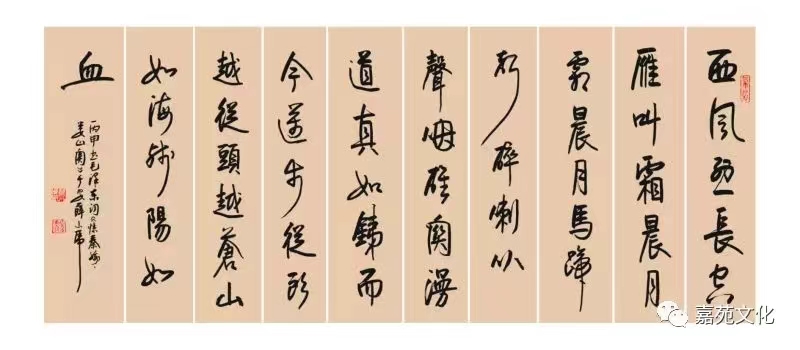 西風烈長空
雁叫霜晨月
霜晨月馬蹄
声碎喇叭
聲咽雄關漫
道真如鐵而
今邁步從頭
越從頭越蒼山
如海殘陽如
血
丙申书毛泽东词忆秦娥
娄山關
嘉苑文化